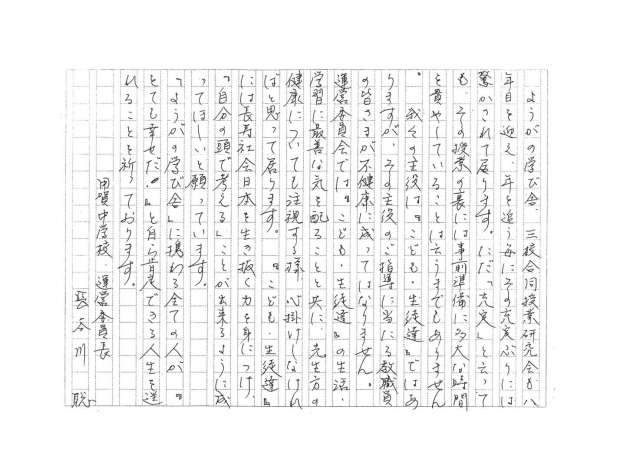 ようがの学び舎、三校合同授業研究会も八
年目を迎え、年を追う毎にその充実ぶりには
驚かされて居ります。ただ「充実」と云って
も、その授業の裏には事前準備に多大な時間
を費やしていることは云うまでもありません
。我々の主役は『こども・生徒達』ではあ
りますが、その主役のご指導に当たる教職員
の皆さまが不健康に成ってはなりません。
運営委員会では『こども・生徒達』の生活・
学習に最善な気を配ることと共に、先生方の
健康についても注視する様、心掛けしなけれ
ばと思って居ります。『こども・生徒達』
には長寿社会日本を生き抜く力を身につけ、
「自分の頭で考える」ことが出来るように成
ってほしいと願っています。
「ようがの学び舎」に携わる全ての人が『
とても幸せだ!』と自ら肯定できる人生を送
れることを祈っております。
用賀中学校 運営委員長
長谷川 聡